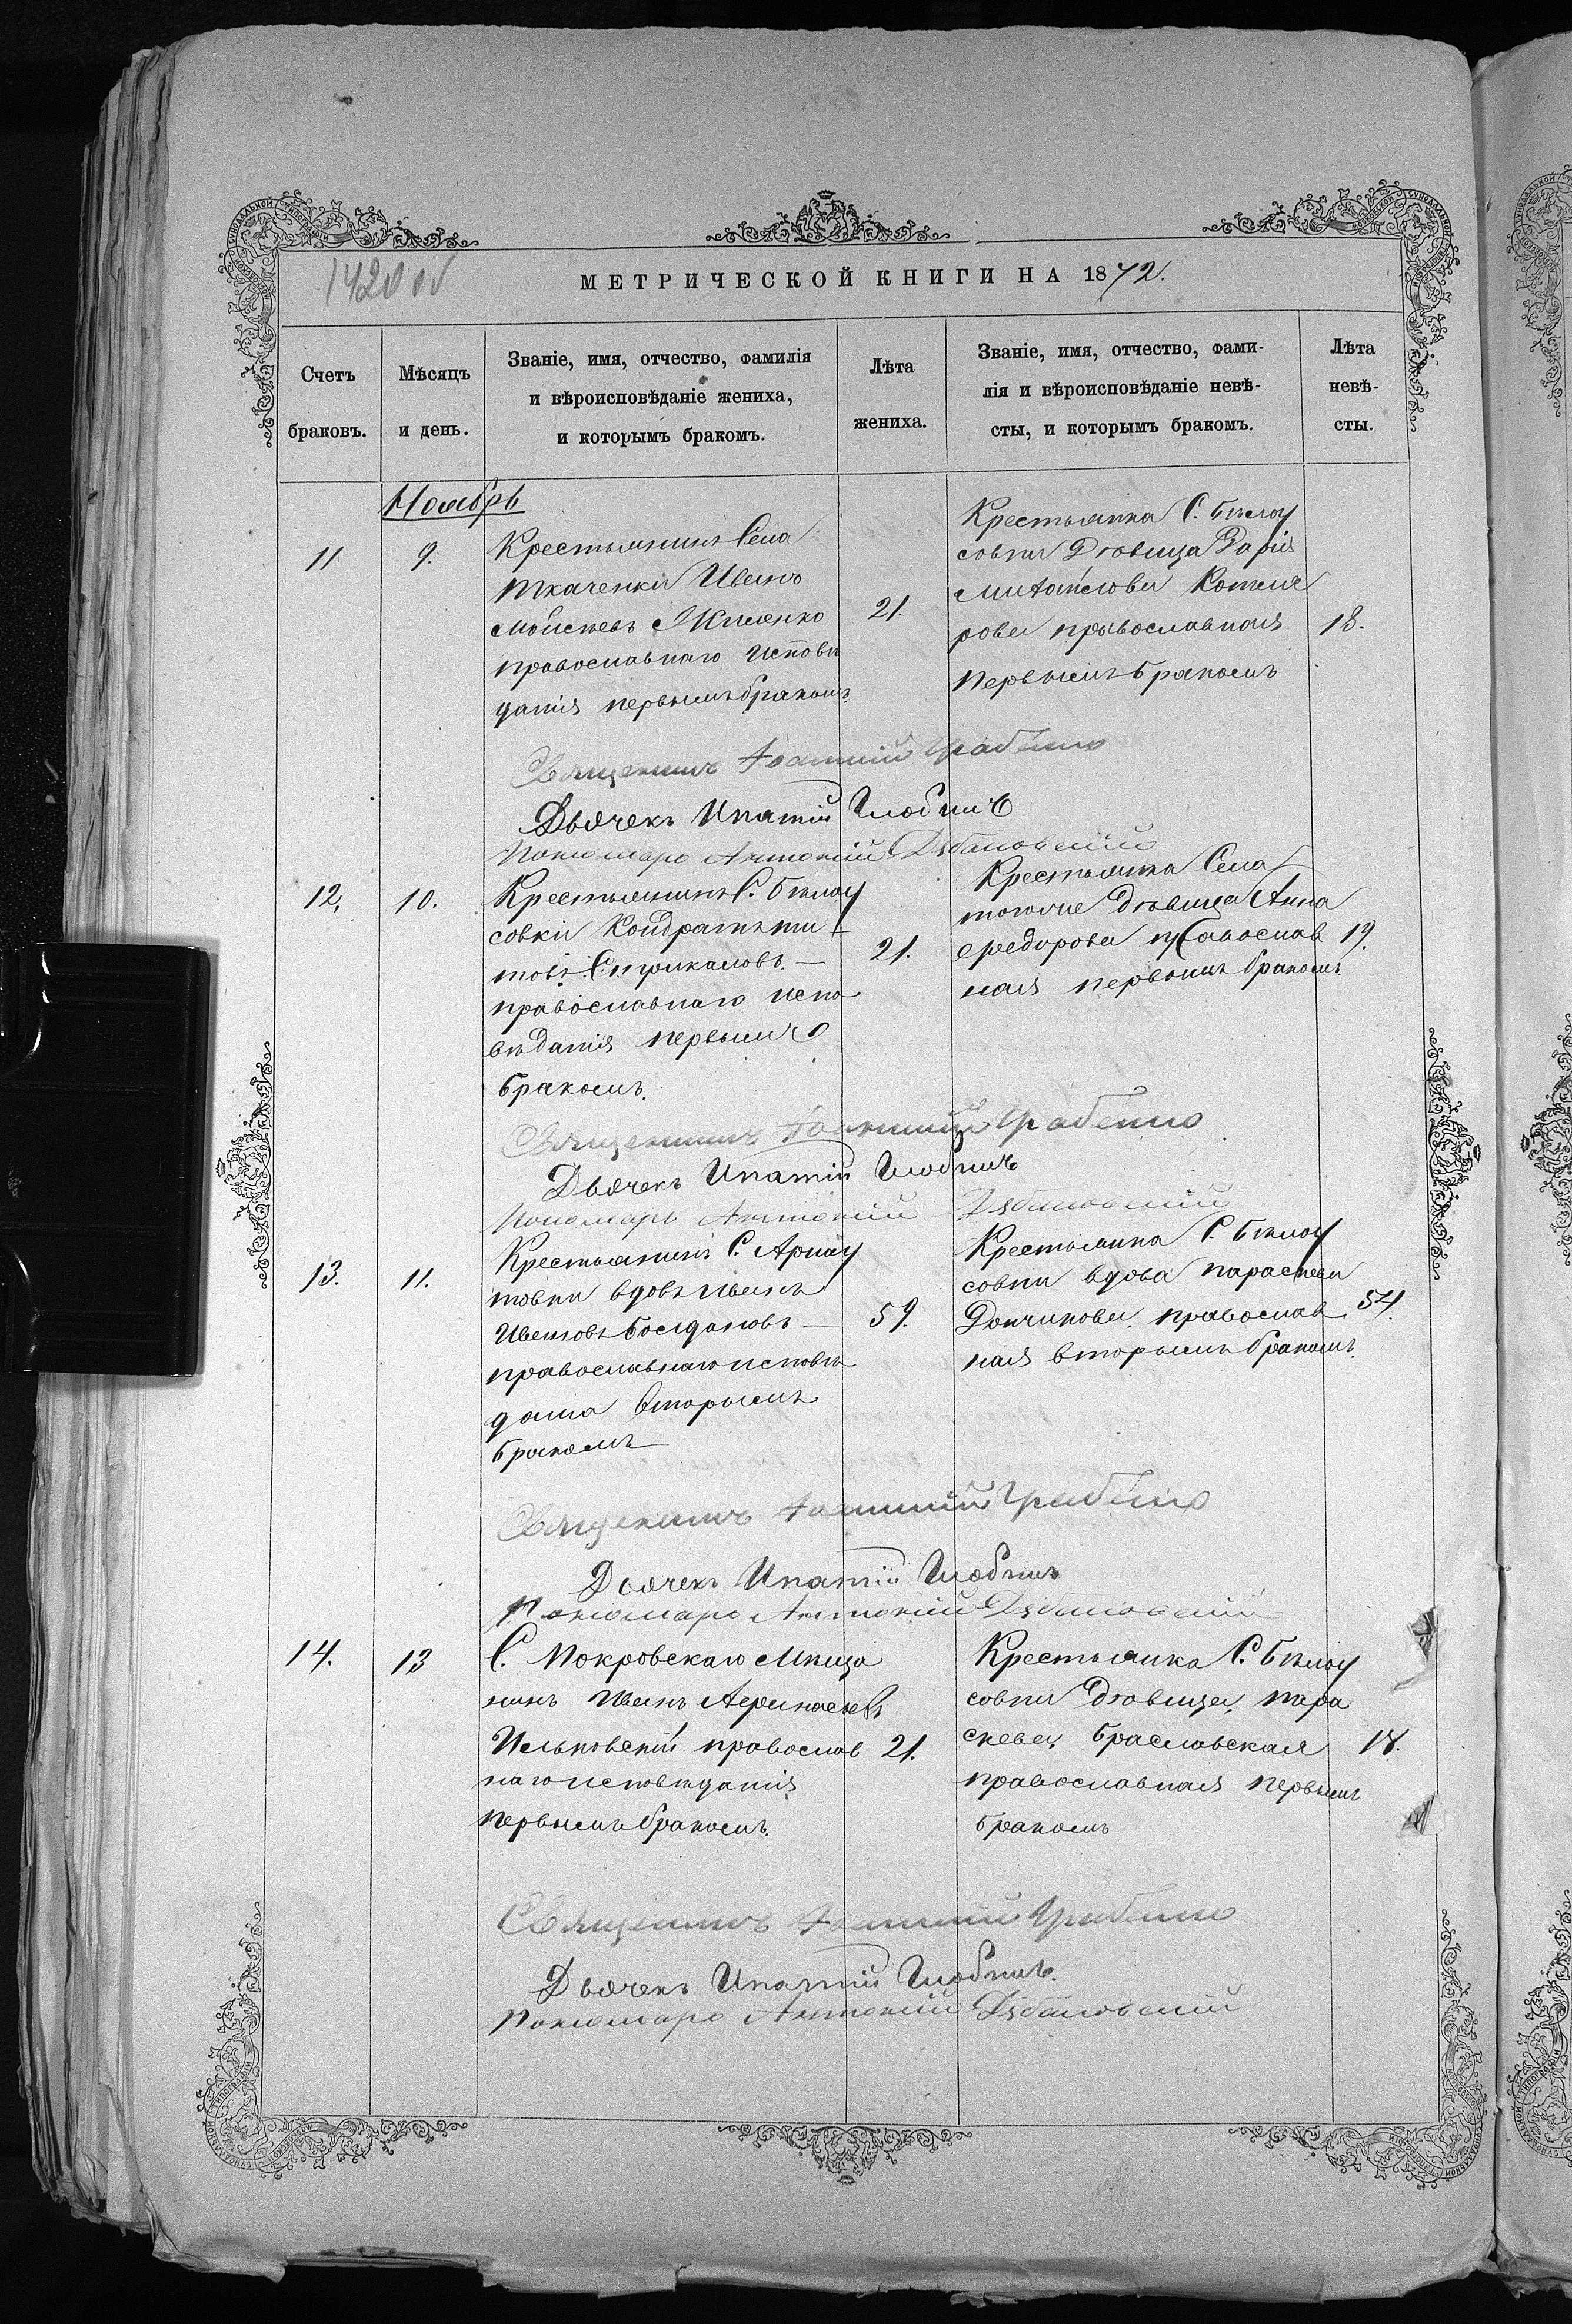 1420 об
МЕТРИЧЕСКОЙ КНИГИ НА 1872.
Счетъ
браковъ.
Мѣсяцъ
и день.
Званіе, имя, отчество, фамилія
и вѣроисповѣданіе жениха,
и которымъ бракомъ.
Лѣта
жениха.
Званіе, имя, отчество, фами-
лія и вѣроисповѣданіе невѣ-
сты, и которымъ бракомъ.
Лѣта
невѣ-
сты.
Ноябрь
11
9.
Крестьянинъ Села
Ткаченки Иванъ
Моѵсѣевъ Якименко
православнаго исповѣ
данія первымъ бракомъ
21.
Крестьянка С. Бѣлоу
совки Дѣвица Дарія
Михайлова Котля
рова православная
первымъ бракомъ
18.
Священникъ
Дьячекъ Ипатій
Пономарь Антоній
12.
10.
Крестьянинъ С. Бѣлоу
совки Кондратъ Ти
товъ
православнаго испо
вѣданія первымъ
бракомъ.
21.
Крестьянка Села
тогоже Дѣвица Анна
Ѳедорова православ
ная первымъ бракомъ
19.
Священникъ
Дьячекъ Ипатій
Пономарь Антоній
13.
11.
Крестьянинъ С. Арнау
товки вдовъ Иванъ
Ивановъ Богдановъ
православнаго исповѣ
данія вторымъ
бракомъ
59.
Крестьянка С. Бѣлоу
совки вдова Параскева
Дончикова православ
ная вторымъ бракомъ
54.
Священникъ
Дьячекъ Ипатій
Пономарь Антоній
14.
13
С. Покровскаго Мѣща
нинъ Иванъ
Ильковскій православ
наго исповѣданія
первымъ бракомъ.
21.
Крестьянка С. Бѣлоу
совки Дѣвица Пара
скева Браславская
православная первымъ
бракомъ
18.
Священникъ
Дьячекъ Ипатій
Пономарь Антоній